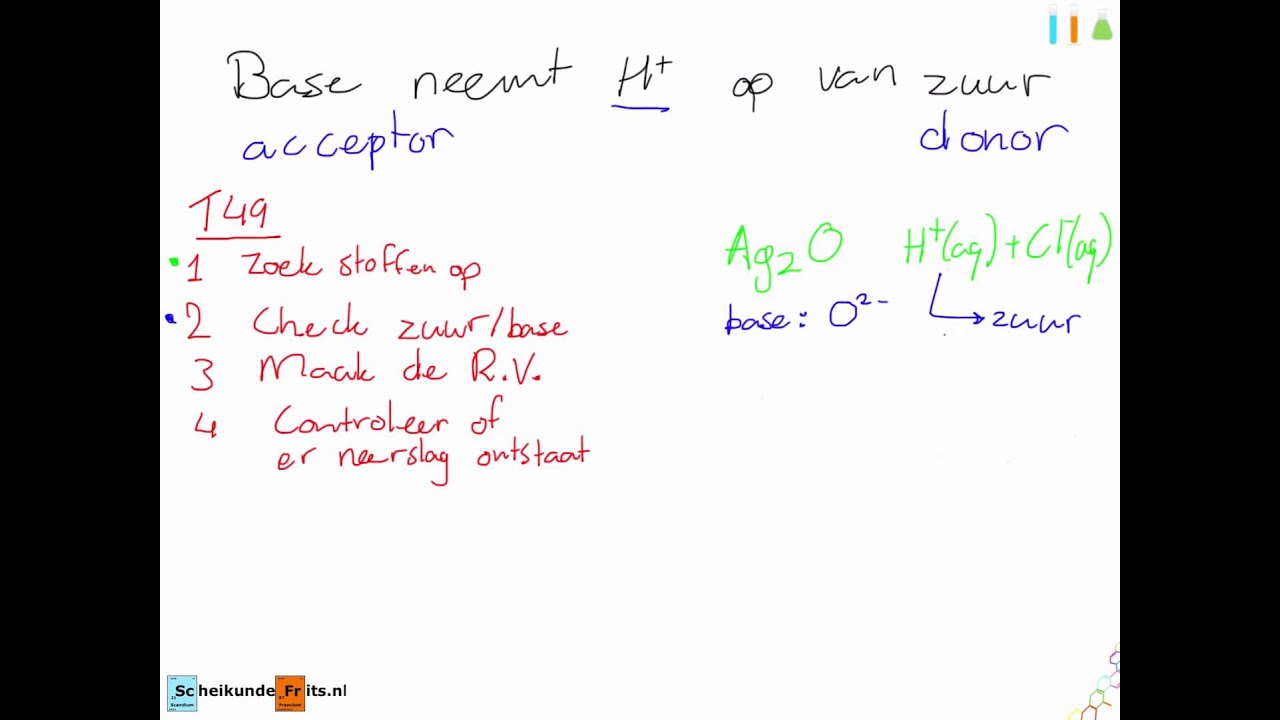 Base neemt H⁺ op van zuur
acceptor donor
T49
1 Zoek stoffen op
2 Check zuur/base
3 Maak de R.V.
4 Controleer of
er neerslag ontstaat
Ag₂O H⁺(aq) + Cl⁻(aq)
base: O²⁻ → zuur
ScheikundeFrits.nl